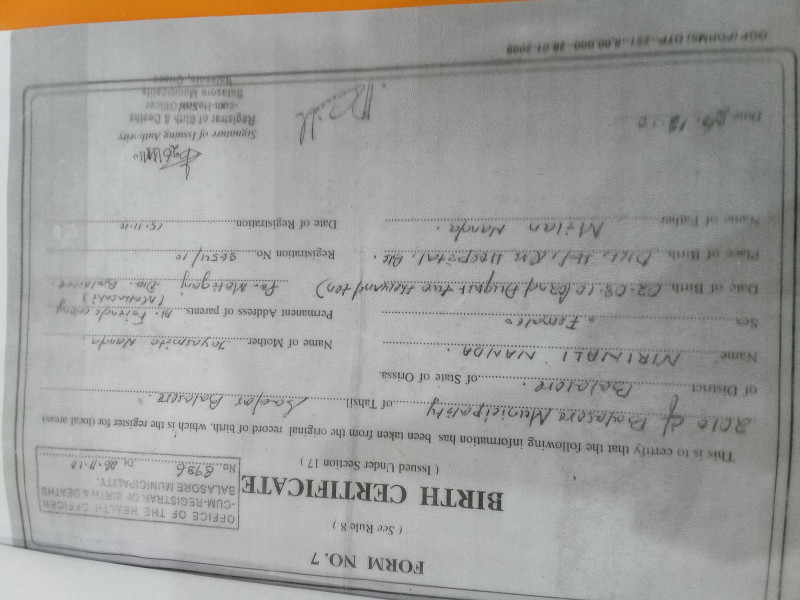 FORM NO. 7
( See Rule 8 )
BIRTH CERTIFICATE
( Issued Under Section 17 )
OFFICE OF THE HEALTH OFFICER
-CUM-REGISTRAR OF BIRTH & DEATHS
BALASORE MUNICIPALITY.
No. 8936 Dt 26.11.10
This is to certify that the following information has been taken from the original record of birth. which is the register for (local areas)
2010 of Balasore Municipality of Tahsil Sadar Balasore.
of District Balasore. of State of Orissa.
Name NIRIMALI NANDA.
Name of Mother Nanda
Sex Female
Permanent Address of parents. At. Friends colony
Date of Birth 02.08.10 (2nd August two thousand ten)
Po. Motiganj Dist. Balasore.
Place of Birth. Hospital, Bls.
Registration No. 3654/10
Name of Father Milan Nanda.
Date of Registration 15.11.10
Date 26.10
Signature of Issuing Authority
Registrar of Birth & Deaths
-cum-Health Officer
Balasore Municipality
Balasore, Orissa
OGP (FORMS) DTP.-251-8,00,000-28-01-2009